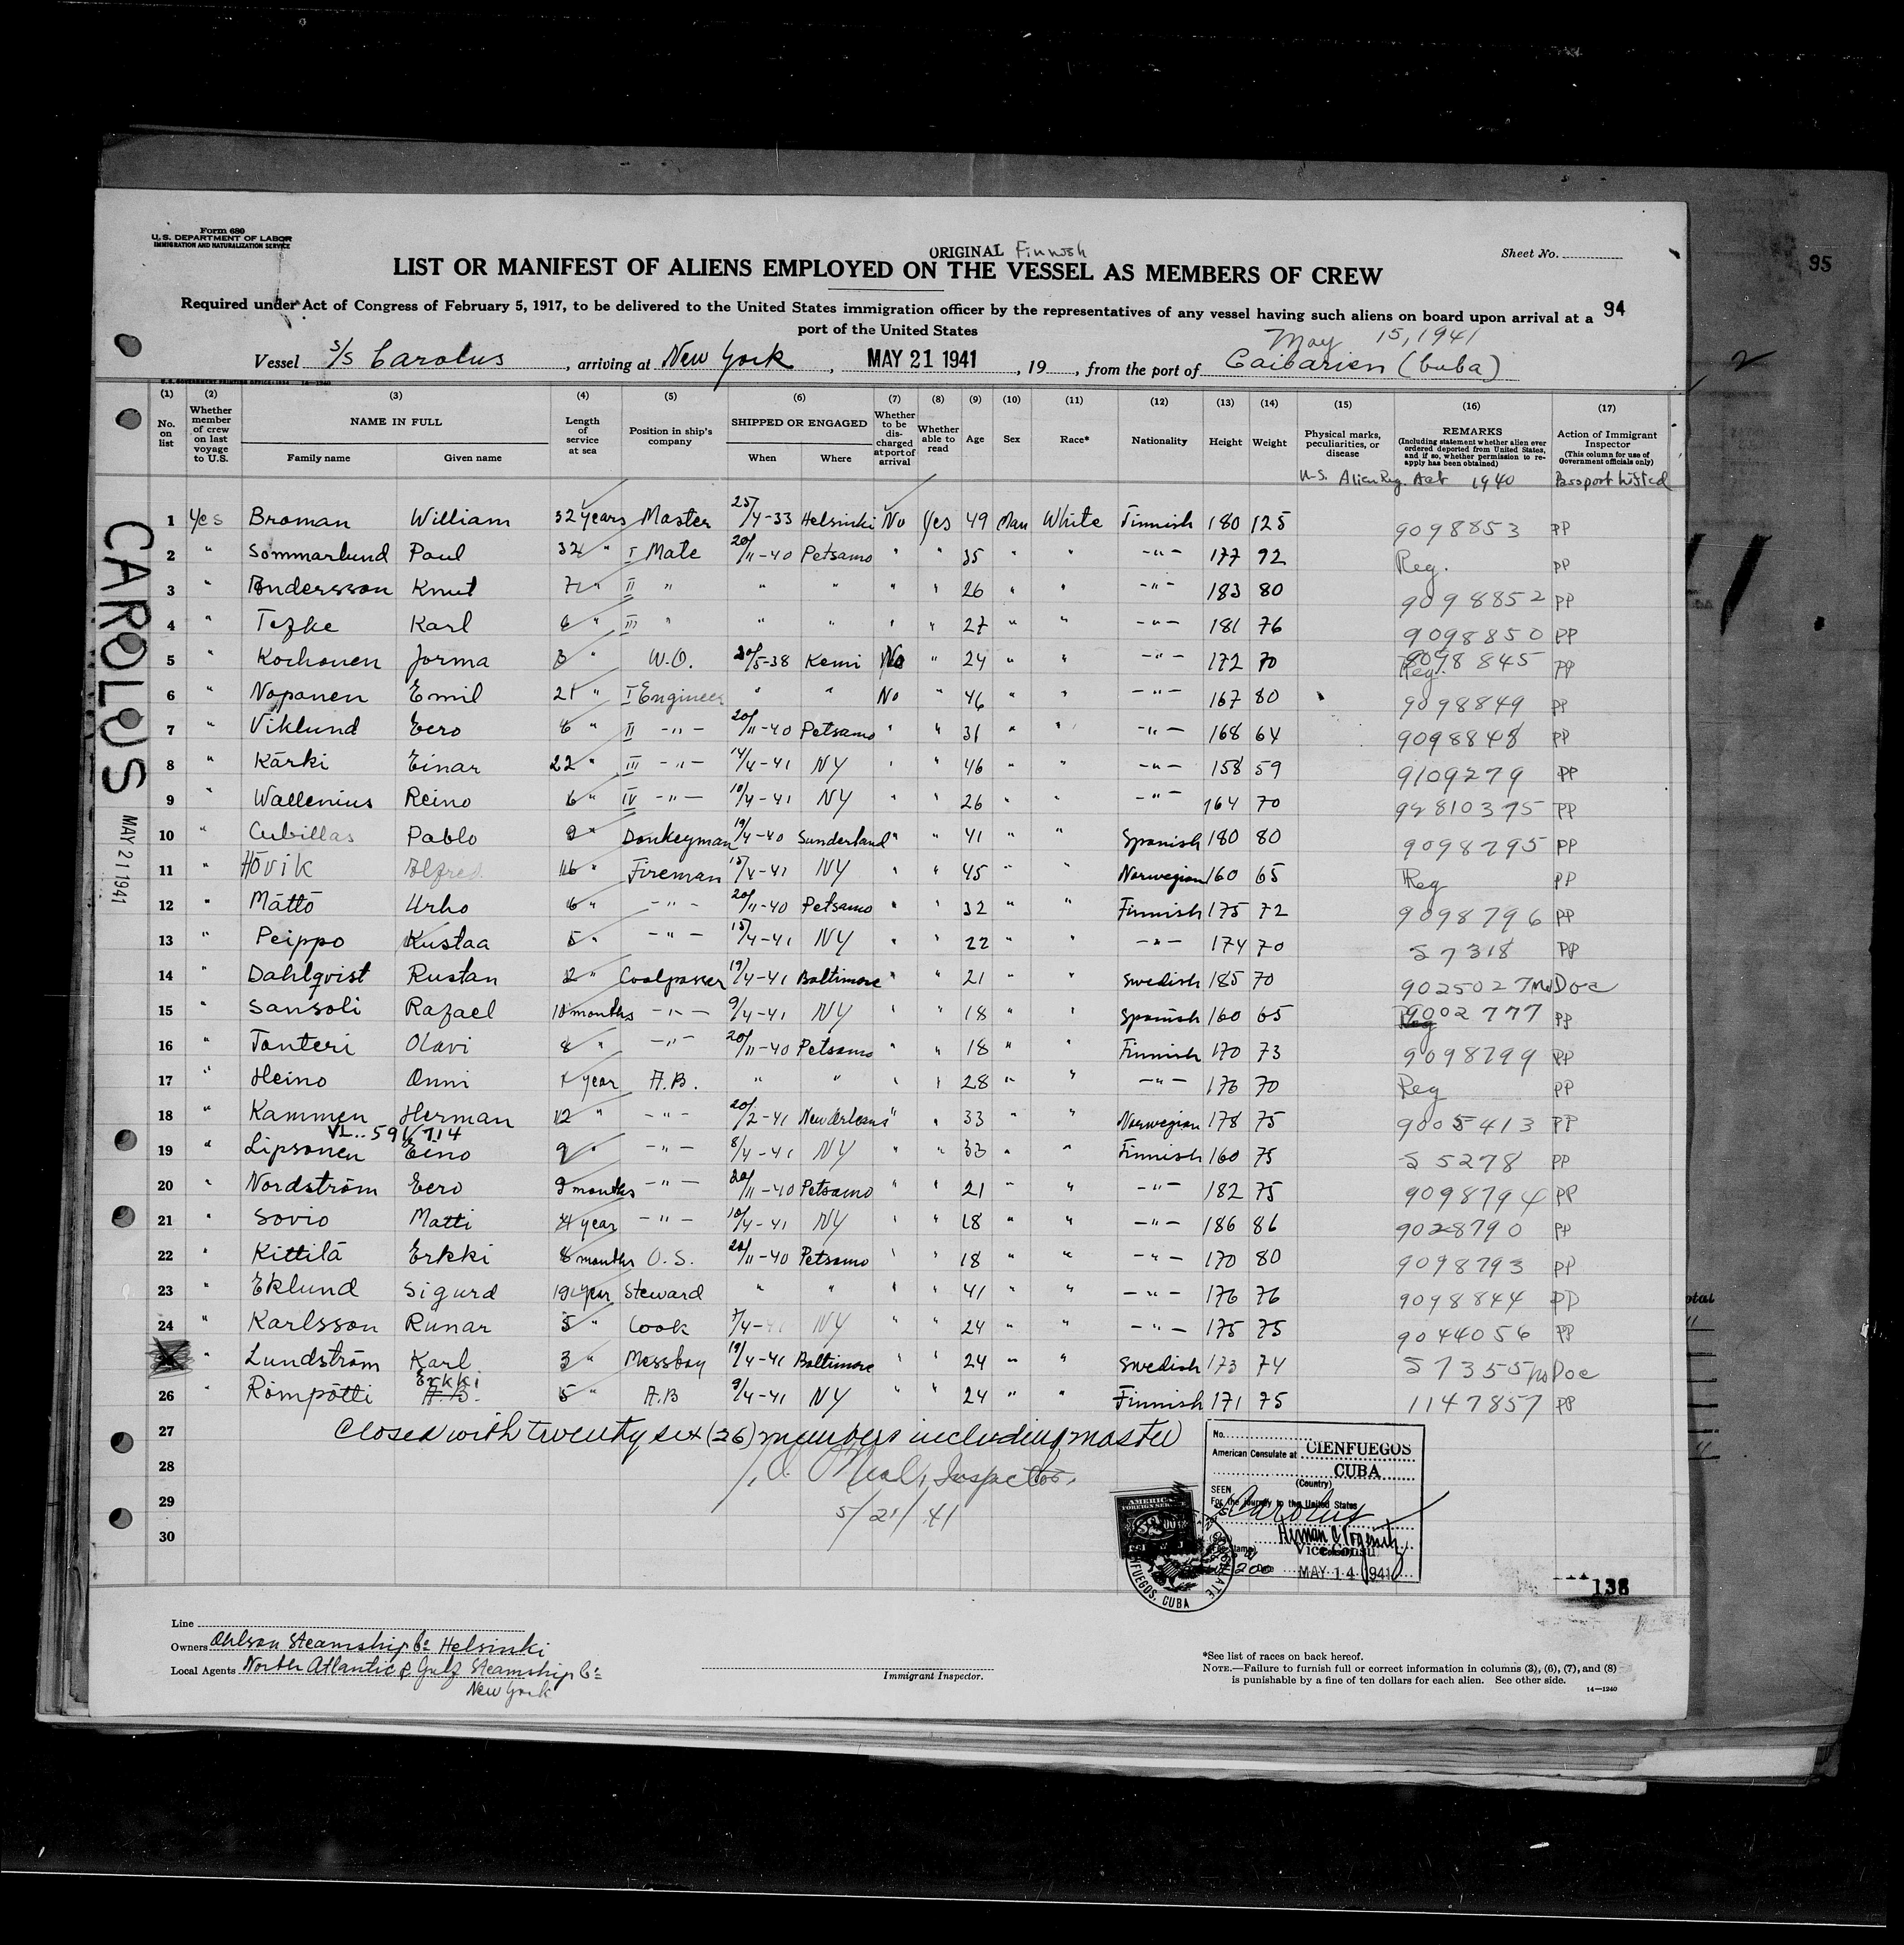 Form 680
U.S. DEPARTMENT OF LABOR
IMMIGRATION AND NATURALIZATION SERVICE
ORIGINAL Finnish
Sheet No.
LIST OR MANIFEST OF ALIENS EMPLOYED ON THE VESSEL AS MEMBERS OF CREW
95
Required under Act of Congress of February 5, 1917, to be delivered to the United States immigration officer by the representatives of any vessel having such aliens on board upon arrival at a
port of the United States
94
May 15, 1941
Vessel S/S Carolus, arriving at New York, MAY 21 1941, 19, from the port of Caibarien (Cuba)
2
(1) (2) (3) (4) (5) (6) (7) (8) (9) (10) (11) (12) (13) (14) (15) (16) (17)
No. on list
Whether member of crew on last voyage to U.S.
NAME IN FULL
Family name Given name
Length of service at sea
Position in ship's company
SHIPPED OR ENGAGED
When Where
Whether to be discharged at port of arrival
Whether able to read
Age Sex Race* Nationality Height Weight
Physical marks, peculiarities, or disease
REMARKS
(Including statement whether alien ever ordered deported from United States, and if so, whether permission to reapply has been obtained)
Action of Immigrant Inspector
(This column for use of Government officials only)
U.S. Alien Reg. Act 1940 Passport Listed
CAROLUS MAY 21 1941
1 Yes Broman William 32 years Master 25/4-33 Helsinki No Yes 49 Man White Finnish 180 125 9098853 PP
2 " Sommarlund Paul " I Mate 20/11-40 Petsamo " " 35 " " -"- 177 92 Reg. PP
3 " Andersson Knut " II " " " " " 26 " " -"- 183 80 9098852 PP
4 " Tezke Karl 6 " III " " " " " 27 " " -"- 181 76 9098850 PP
5 " Korhonen Jorma 3 " W.O. 20/5-38 Kemi No " 24 " " -"- 172 70 9098845 Reg. PP
6 " Nopanen Emil 21 " I Engineer " " No " 46 " " -"- 167 80 9098849 PP
7 " Viklund Eero 6 " II -"- 20/11-40 Petsamo " " 31 " " -"- 168 64 9098848 PP
8 " Kärki Einar 22 " III -"- 14/4-41 NY " " 46 " " -"- 158 59 9109279 PP
9 " Wallenius Reino 6 " IV -"- 10/4-41 NY " " 26 " " -"- 164 70 PP
10 " Cubillas Pablo 9 " Donkeyman 19/4-40 Sunderland " " 41 " " Spanish 180 80 9098795 PP
11 " Hövik Alfred 16 " Fireman 15/4-41 NY " " 45 " Norwegian 160 65 Reg PP
12 " Mättö Urho 6 " -"- 20/11-40 Petsamo " " 32 " " Finnish 175 72 9098796 PP
13 " Peippo Kustaa 5 " -"- 15/4-41 NY " " 22 " " -"- 174 70 57318 PP
14 " Dahlqvist Rustan 2 " Coalpasser 19/4-41 Baltimore " " 21 " " Swedish 185 70 9025027 No Doc
15 " Sansoli Rafael 10 months -"- 9/4-41 NY " " 18 " " Spanish 160 65 9002777 PP
16 " Tanteri Olavi 8 " -"- 20/11-40 Petsamo " " 18 " " Finnish 170 73 9098799 PP
17 " Heino Onni year A.B. " " " " 28 " " -"- 176 70 Reg PP
18 " Kammen Herman 12 " -"- 20/2-41 New Orleans " " 33 " Norwegian 178 75 9005413 PP
VL..591/714
19 " Lipsonen Eino 9 " -"- 8/4-41 NY " " 33 " " Finnish 160 75 55278 PP
20 " Nordström Eero 9 months -"- 20/11-40 Petsamo " " 21 " " -"- 182 75 9098794 PP
21 " Sovio Matti 4 year -"- 10/4-41 NY " " 18 " " -"- 186 86 9028790 PP
22 " Kittilä Erkki 8 months O.S. 20/11-40 Petsamo " " 18 " " -"- 170 80 9098793 PP
23 " Eklund Sigurd 19 year Steward " " " " 41 " " -"- 176 76 9098844 PP
24 " Karlsson Runar 5 " Cook 7/4- NY " " 24 " " -"- 175 75 9044056 PP
" Lundström Karl 3 " Messboy 19/4-41 Baltimore " " 24 " " Swedish 173 74 57355 No Doc
Erkki
26 " Römpötti A.B. 5 " A.B 9/4-41 NY " " 24 " " Finnish 171 75 1147857 PP
27 Closed with twenty six (26) members including master
28 Inspector.
29 5/21/41
30
No.
American Consulate at CIENFUEGOS
CUBA
(Country)
SEEN
For the journey to the United States
Carolus
Vice Consul
MAY 14 1941
AMERICAN FOREIGN SERVICE
CIENFUEGOS, CUBA
138
Line
Owners Ohlson Steamship Co Helsinki
Local Agents North Atlantic & Gulf Steamship Co
New York
Immigrant Inspector.
*See list of races on back hereof.
NOTE.—Failure to furnish full or correct information in columns (3), (6), (7), and (8)
is punishable by a fine of ten dollars for each alien. See other side.
14—1240